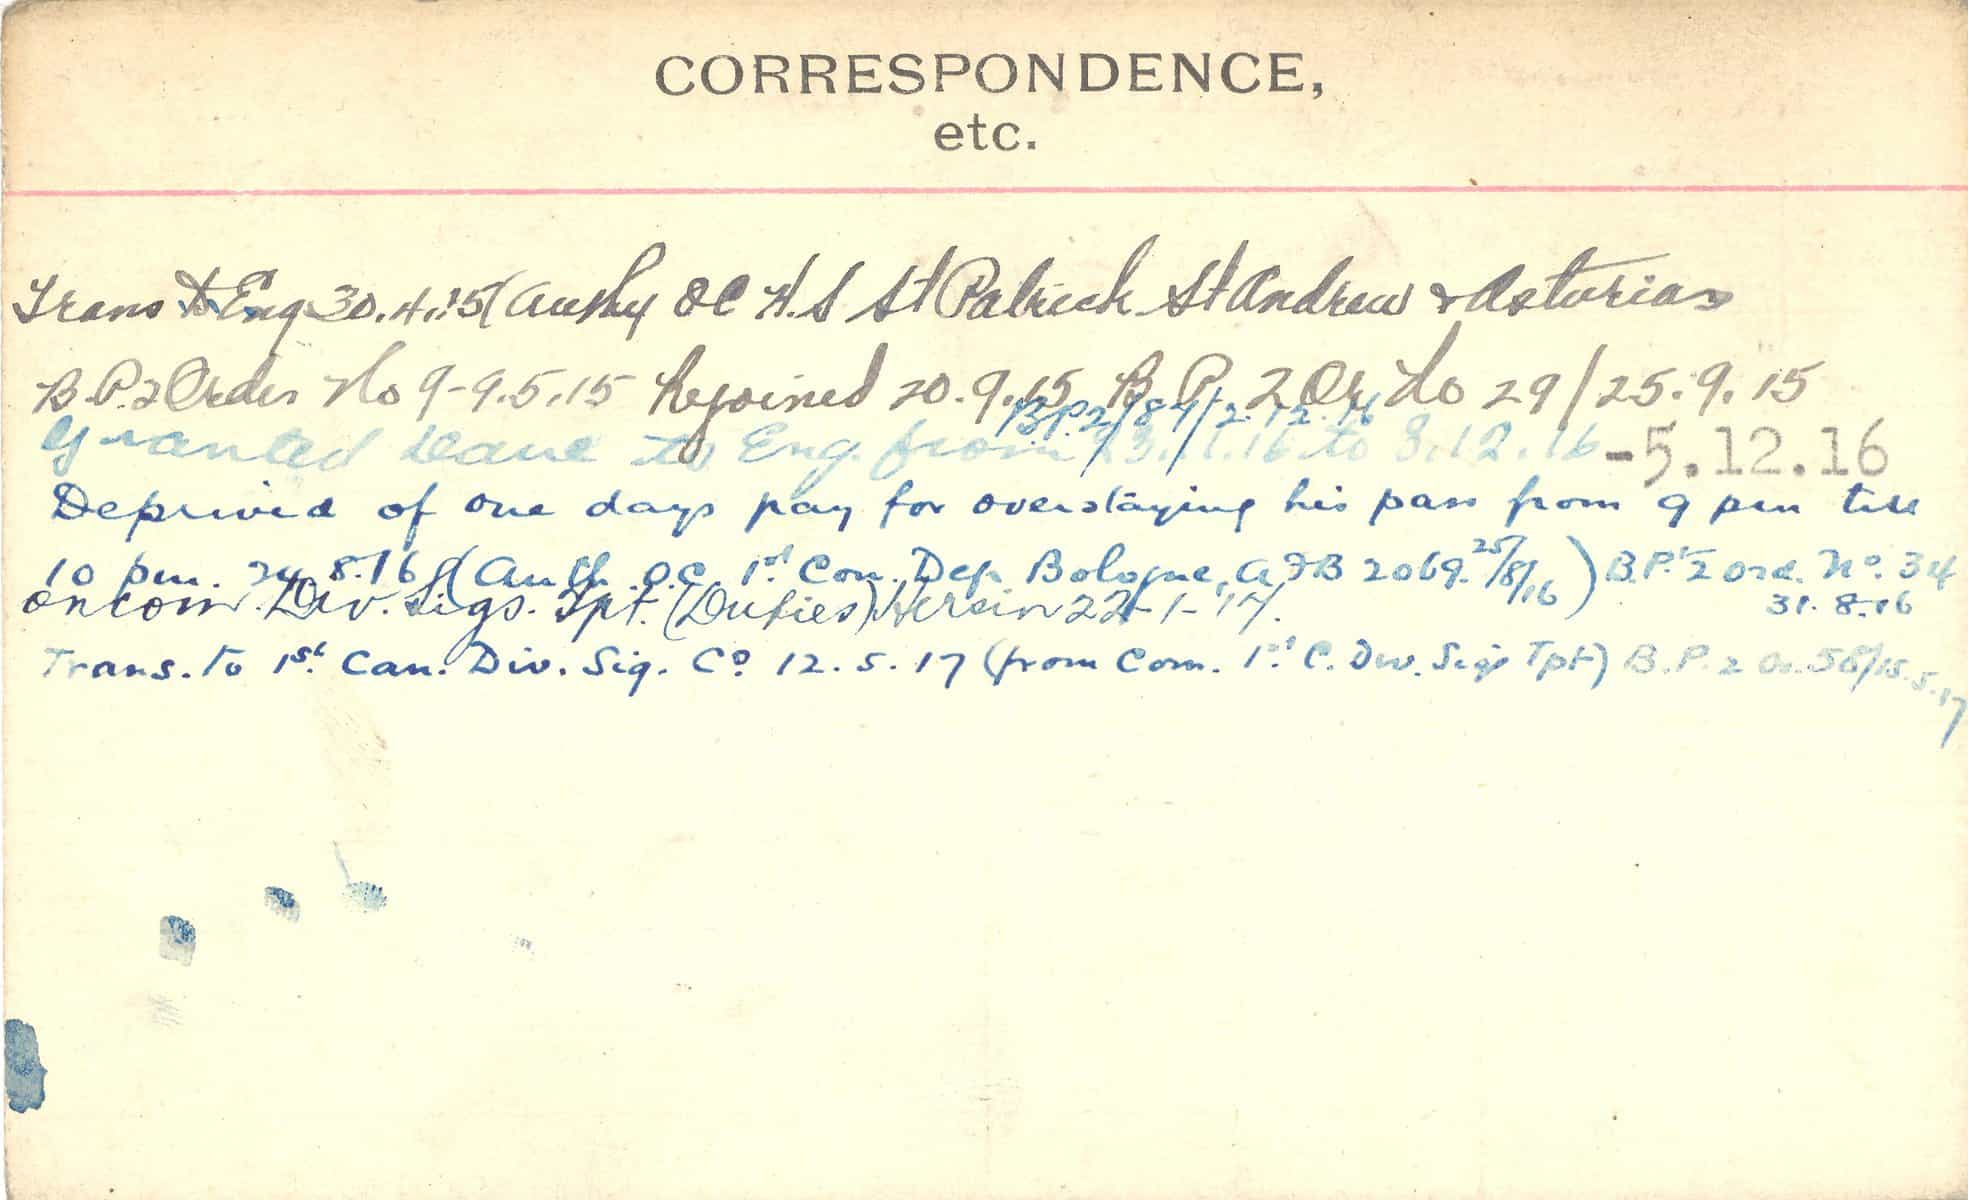 CORRESPONDENCE,
etc.
Trans to Eng 30.4.15 (Authy OC H.S St Patrick St Andrew & Asturias
B.P.2 Order No 9-9.5.15 Rejoined 20.9.15 B.P. 2 Or No 29/25.9.15
B.P.2/87/2.12.16
Granted leave to Eng. from 23.11.16 to 3.12.16 -5.12.16
Deprived of one days pay for overstaying his pass from 9 pm till
10 pm. 24.8.16 (Auth. O.C. 1st Con. Dep. Bologne, AFB 2069. 25/8/16) B.P.2 Ord. No. 34
31.8.16
on com Div. Sigs. Tpt. (Duties) Hersin 22-1-17.
Trans. to 1st. Can. Div. Sig. Co 12.5.17 (from Com. 1st C. Div. Sigs Tpt) B.P.2 Or. 58/15.5.17